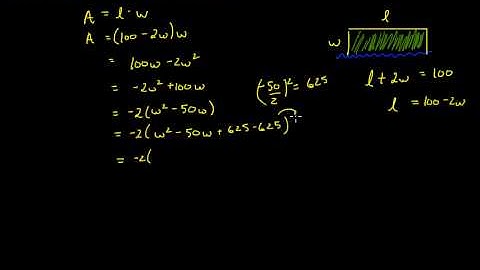 A = l · w
A = (100 - 2w)w
= 100w - 2w²
= -2w² + 100w
= -2(w² - 50w)
= -2(w² - 50w + 625 - 625)
= -2(
(-50/2)² = 625
l
w
l + 2w = 100
l = 100 - 2w